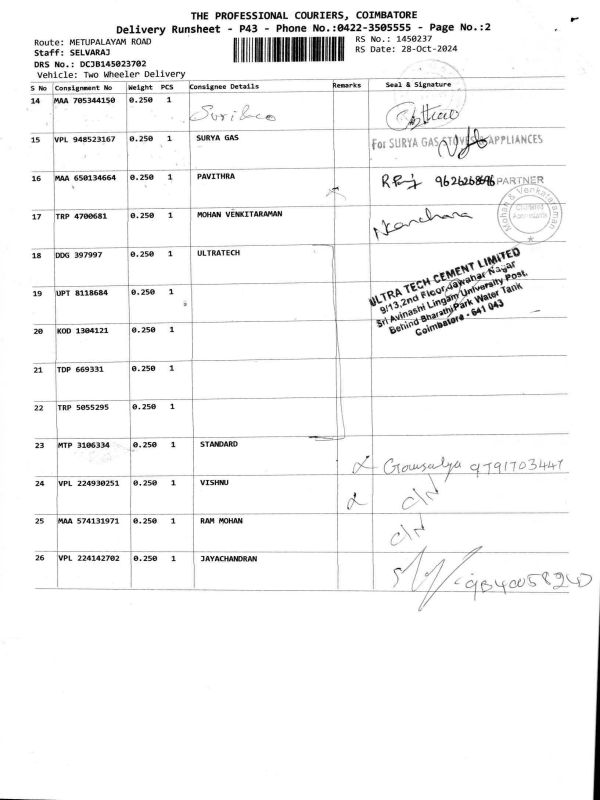 THE PROFESSIONAL COURIERS, COIMBATORE
Delivery Runsheet - P43 - Phone No.:0422-3505555 - Page No.:2
Route: METUPALAYAM ROAD
RS No.: 1450237
Staff: SELVARAJ
RS Date: 28-Oct-2024
DRS No.: DCJB145023702
Vehicle: Two Wheeler Delivery
S No Consignment No Weight PCS Consignee Details Remarks Seal & Signature
14 MAA 705344150 0.250 1
15 VPL 948523167 0.250 1 SURYA GAS
For SURYA GAS STOVES & APPLIANCES
16 MAA 650134664 0.250 1 PAVITHRA
9626268696 PARTNER
17 TRP 4700681 0.250 1 MOHAN VENKITARAMAN
Mohan & Venkataraman
Chartered
Accountants
18 DDG 397997 0.250 1 ULTRATECH
ULTRA TECH CEMENT LIMITED
9/13,2nd Floor,Jawahar Nagar
Sri Avinashi Lingam University Post,
Behind Bharathi Park Water Tank
Coimbatore - 641 043
19 UPT 8118684 0.250 1
20 KOD 1304121 0.250 1
21 TDP 669331 0.250 1
22 TRP 5055295 0.250 1
23 MTP 3106334 0.250 1 STANDARD
Gowsalya 9791703447
24 VPL 224930251 0.250 1 VISHNU
C/N
25 MAA 574131971 0.250 1 RAM MOHAN
C/N
26 VPL 224142702 0.250 1 JAYACHANDRAN